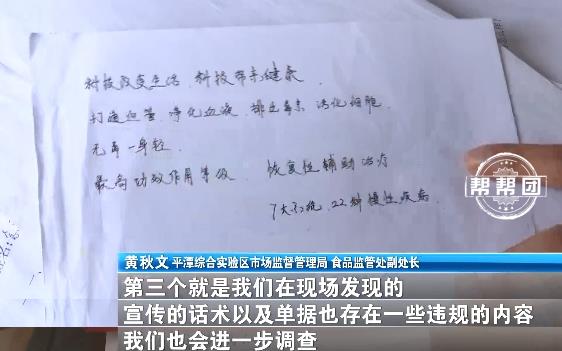 科技改变生活 科技带来健康
打通血管 净化血液 排出毒素 活化细胞
无毒一身轻
最高功效作用等级 恢复性辅助治疗
22种慢性疾病
帮帮团
黄秋文 平潭综合实验区市场监督管理局 食品监管处副处长
第三个就是我们在现场发现的
宣传的话术以及单据也存在一些违规的内容
我们也会进一步调查